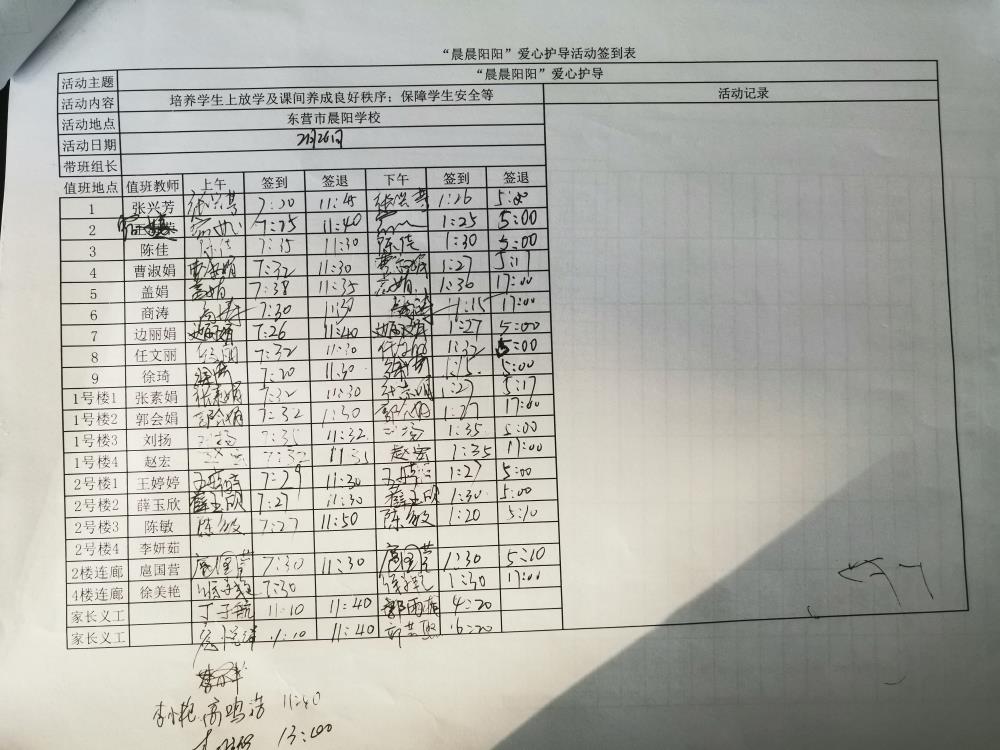 “晨晨阳阳”爱心护导活动签到表
活动主题 “晨晨阳阳”爱心护导
活动内容 培养学生上放学及课间养成良好秩序；保障学生安全等 活动记录
活动地点 东营市晨阳学校
活动日期
带班组长
值班地点 值班教师 上午 签到 签退 下午 签到 签退
1 张兴芳 张兴芳 7:20 11:45 张兴芳 1:26 5:00
2 7:25 11:40 1:25 5:00
3 陈佳 陈佳 7:35 11:30 陈佳 1:30 5:00
4 曹淑娟 曹淑娟 7:32 11:30 1:27 5:17
5 盖娟 盖娟 7:38 11:35 盖娟 1:36 17:00
6 商涛 商涛 7:30 1:15 17:00
7 边丽娟 边丽娟 7:26 11:40 边丽娟 1:27 5:00
8 任文丽 7:32 11:30 1:32 5:00
9 徐琦 7:20 11:30 1:15 5:00
1号楼1 张素娟 张素娟 7:32 11:30 张素娟 1:27 5:17
1号楼2 郭会娟 郭会娟 7:32 1:30 1:27 17:00
1号楼3 刘扬 刘扬 7:35 11:32 刘扬 1:35 5:00
1号楼4 赵宏 7:32 11:35 赵宏 1:35 17:00
2号楼1 王婷婷 王婷婷 7:29 11:30 王婷婷 1:27 5:00
2号楼2 薛玉欣 薛玉欣 7:27 11:30 薛玉欣 1:30 5:00
2号楼3 陈敏 陈敏 7:27 11:50 陈敏 1:20 5:10
2号楼4 李妍茹
2楼连廊 扈国营 扈国营 7:30 11:30 扈国营 1:30 5:10
4楼连廊 徐美艳 徐美艳 7:30 徐美艳 1:30 17:00
家长义工 丁子航 11:10 11:40 4:20
家长义工 11:40
高鸣浩 11:40